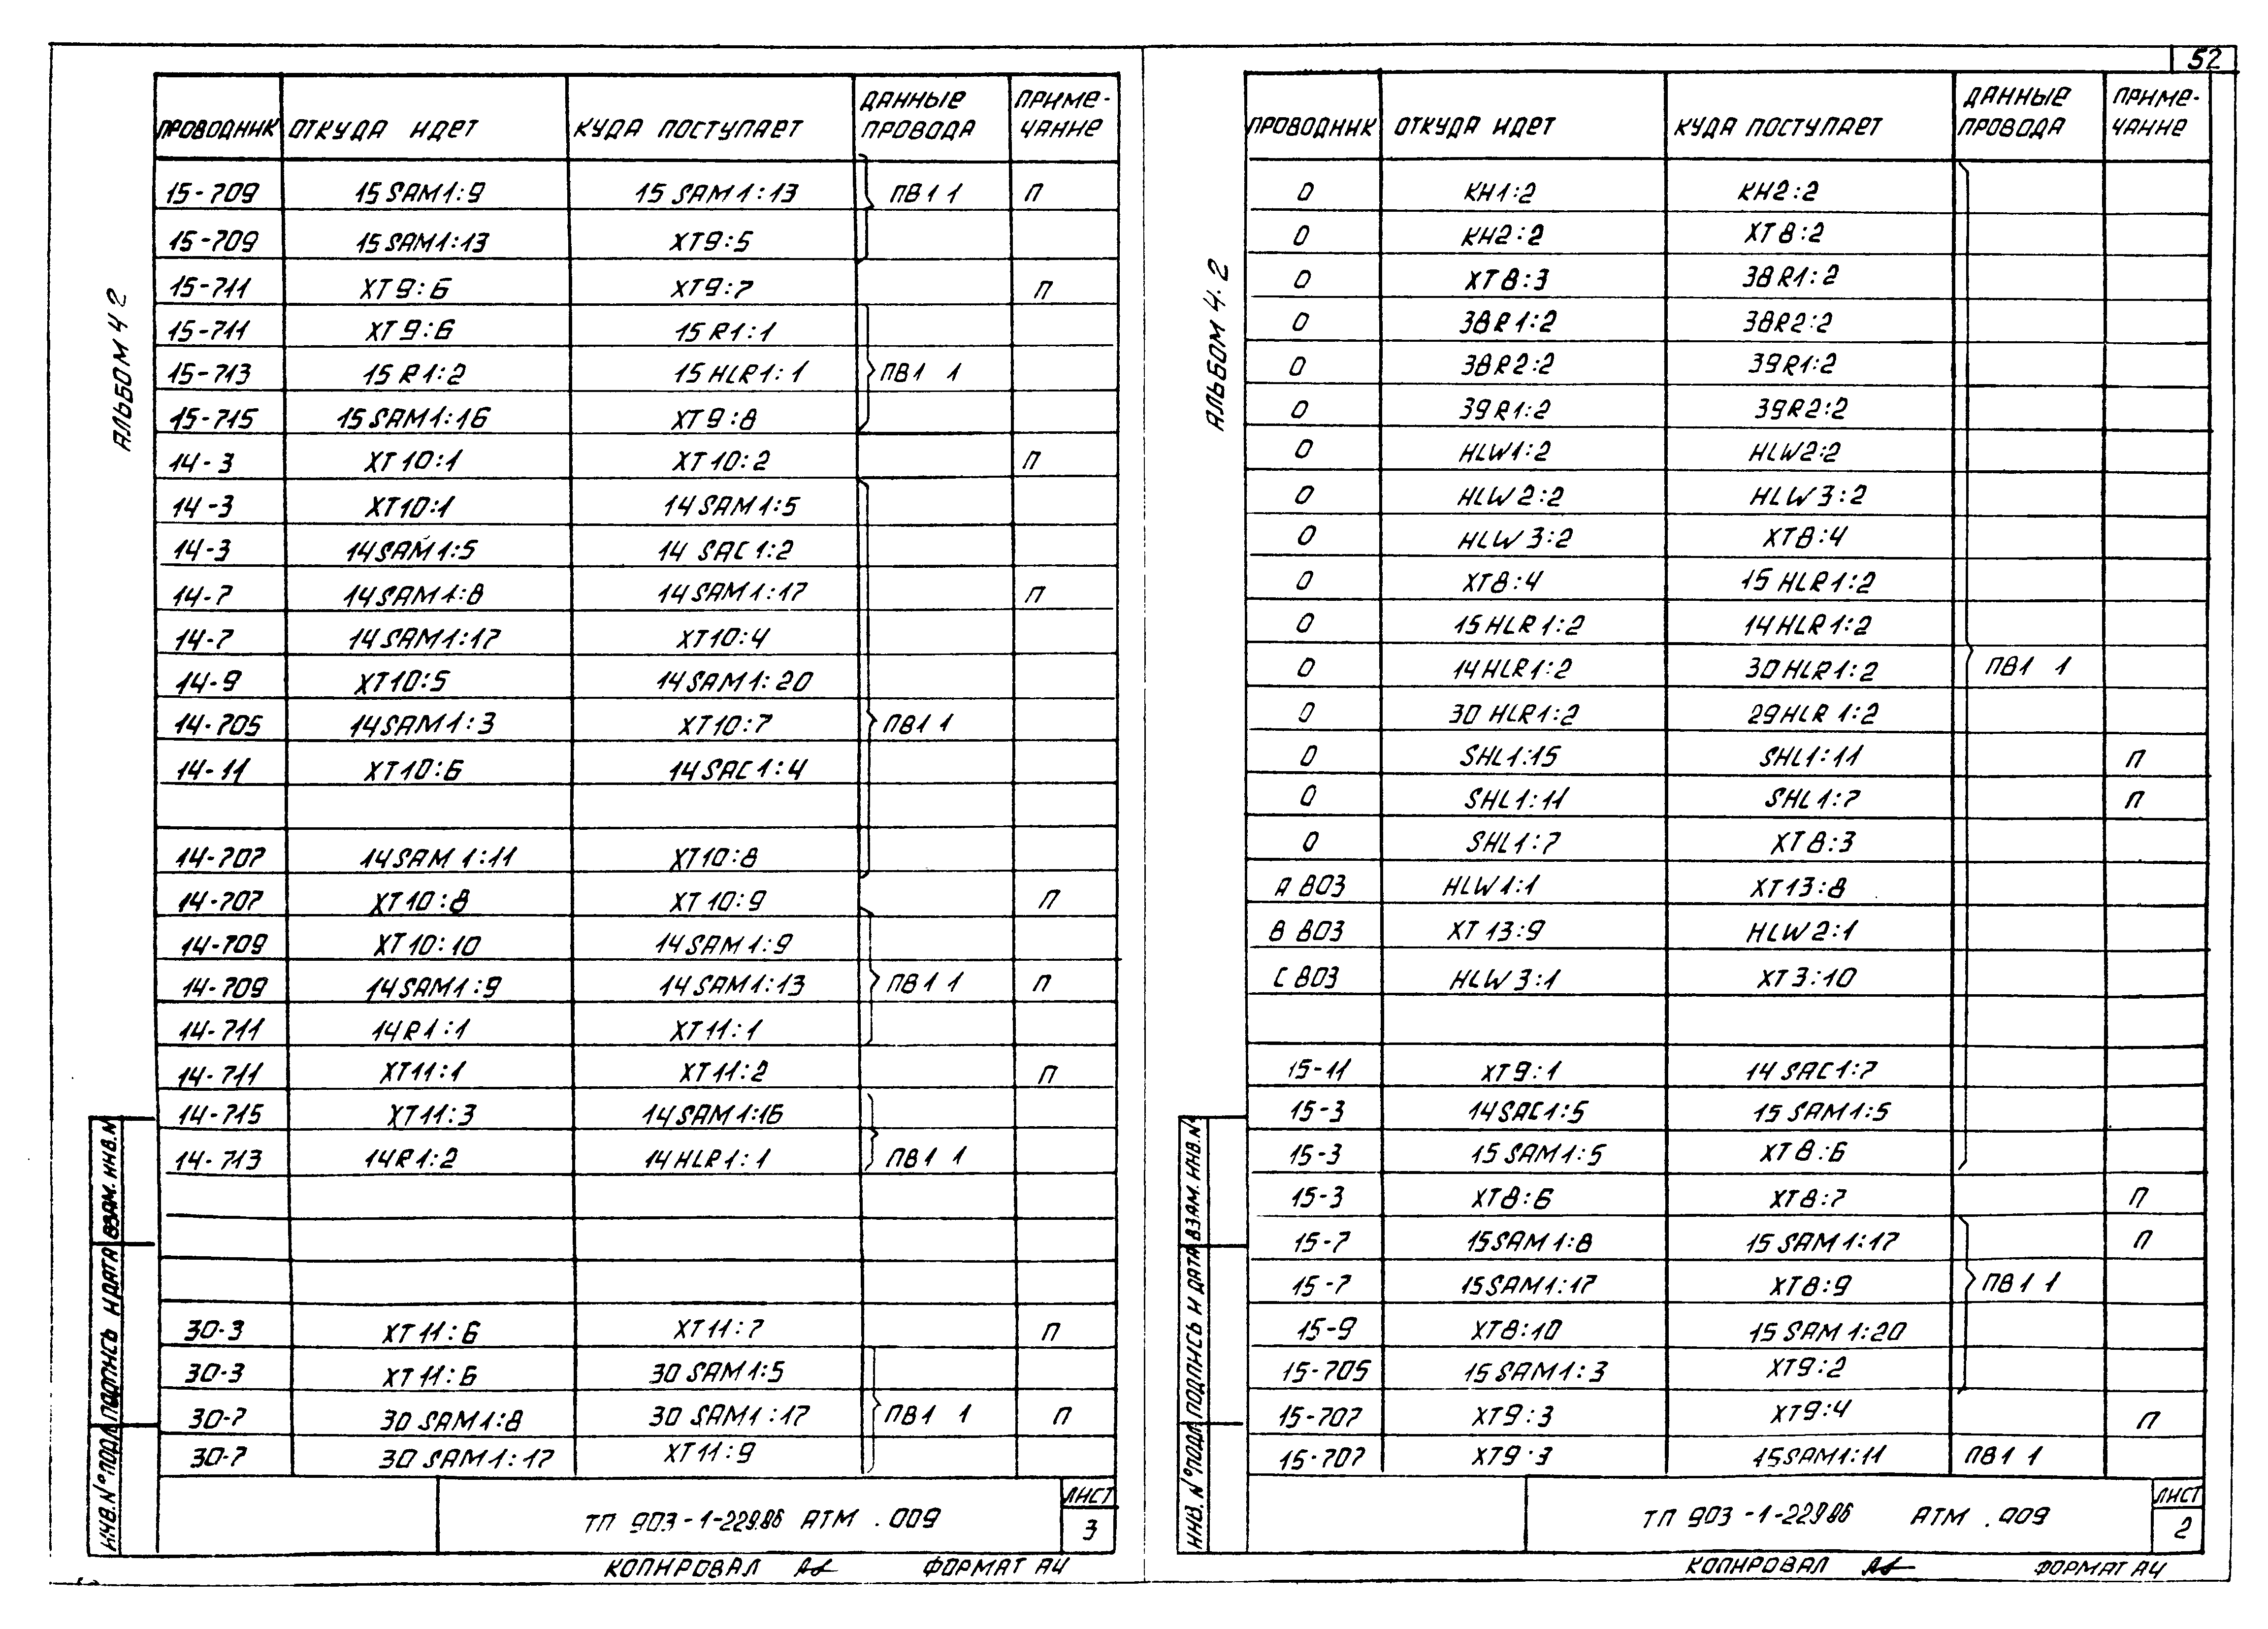 52
АЛЬБОМ 4 2
ПРОВОДНИК ОТКУДА ИДЕТ КУДА ПОСТУПАЕТ ДАННЫЕ ПРОВОДА ПРИМЕ-ЧАНИЕ
15-709 15SAM1:9 15SAM1:13 ПВ1 1 П
15-709 15SAM1:13 XT9:5
15-711 XT9:6 XT9:7 П
15-711 XT9:6 15R1:1
15-713 15R1:2 15HLR1:1 ПВ1 1
15-715 15SAM1:16 XT9:8
14-3 XT10:1 XT10:2 П
14-3 XT10:1 14SAM1:5
14-3 14SAM1:5 14 SAC1:2
14-7 14SAM1:8 14SAM1:17 П
14-7 14SAM1:17 XT10:4
14-9 XT10:5 14SAM1:20
14-705 14SAM1:3 XT10:7 ПВ1 1
14-11 XT10:6 14SAC1:4
14-707 14SAM1:11 XT10:8
14-707 XT10:8 XT10:9 П
14-709 XT10:10 14SAM1:9
14-709 14SAM1:9 14SAM1:13 ПВ1 1 П
14-711 14R1:1 XT11:1
14-711 XT11:1 XT11:2 П
14-715 XT11:3 14SAM1:16
14-713 14R1:2 14HLR1:1 ПВ1 1
30-3 XT11:6 XT11:7 П
30-3 XT11:6 30SAM1:5
30-7 30SAM1:8 30SAM1:17 ПВ1 1 П
30-7 30SAM1:17 XT11:9
ИНВ.№ПОДЛ ПОДПИСЬ И ДАТА ВЗАМ.ИНВ.№
ТП 903-1-229.86 АТМ .009
ЛИСТ
3
КОПИРОВАЛ ФОРМАТ А4
АЛЬБОМ 4.2
ПРОВОДНИК ОТКУДА ИДЕТ КУДА ПОСТУПАЕТ ДАННЫЕ ПРОВОДА ПРИМЕ-ЧАНИЕ
0 KH1:2 KH2:2
0 KH2:2 XT8:2
0 XT8:3 38R1:2
0 38R1:2 38R2:2
0 38R2:2 39R1:2
0 39R1:2 39R2:2
0 HLW1:2 HLW2:2
0 HLW2:2 HLW3:2
0 HLW3:2 XT8:4
0 XT8:4 15HLR1:2
0 15HLR1:2 14HLR1:2
0 14HLR1:2 30HLR1:2 ПВ1 1
0 30HLR1:2 29HLR1:2
0 SHL1:15 SHL1:11 П
0 SHL1:11 SHL1:7 П
0 SHL1:7 XT8:3
A 803 HLW1:1 XT13:8
B 803 XT13:9 HLW2:1
C 803 HLW3:1 XT3:10
15-11 XT9:1 14SAC1:7
15-3 14SAC1:5 15SAM1:5
15-3 15SAM1:5 XT8:6
15-3 XT8:6 XT8:7 П
15-7 15SAM1:8 15SAM1:17 П
15-7 15SAM1:17 XT8:9 ПВ1 1
15-9 XT8:10 15SAM1:20
15-705 15SAM1:3 XT9:2
15-707 XT9:3 XT9:4 П
15-707 XT9:3 15SAM1:11 ПВ1 1
ИНВ.№ПОДЛ ПОДПИСЬ И ДАТА ВЗАМ.ИНВ.№
ТП 903-1-229.86 АТМ .009
ЛИСТ
2
КОПИРОВАЛ ФОРМАТ А4